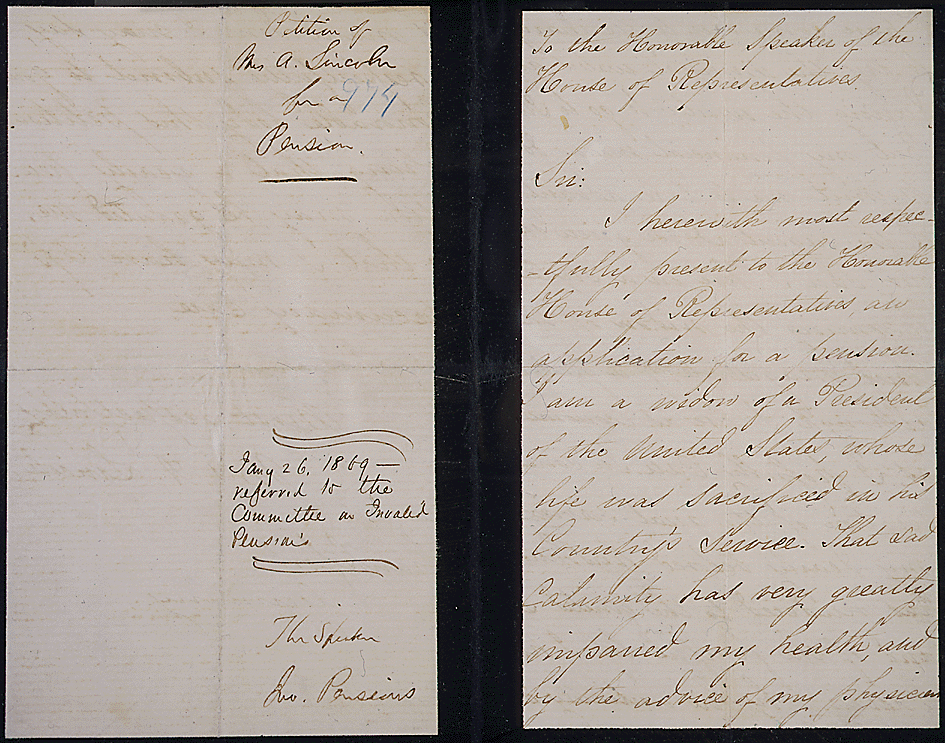 Petition of
Mrs A. Lincoln
for a 994
Pension.
Jany 26, 1869—
referred to the
Committee on Invalid
Pensions
The Speaker
Inv. Pensions
To the Honorable Speaker of the
House of Representatives.
Sir:
I herewith most respec-
-tfully present to the Honorable
House of Representatives, an
application for a pension.
I am a widow of a President
of the United States, whose
life was sacrificed in his
Country's Service. That sad
Calamity has very greatly
impaired my health, and
by the advice of my physician